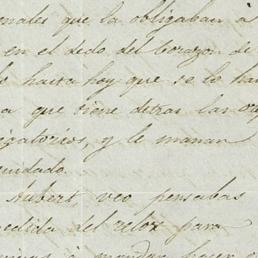 nales que la obligaban à
en el dedo del Corazon de
hasta hoy que se lo han
a que tiene detras las
igatorios, y le manan
cuidado.
Aubert, veo pensabas
edida del relox para
à mandar hacer